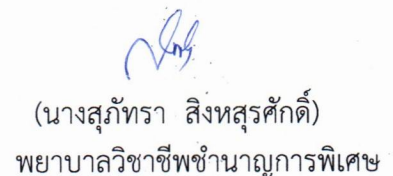 (นางสุภัทรา สิงหสุรศักดิ์)
พยาบาลวิชาชีพชำนาญการพิเศษ